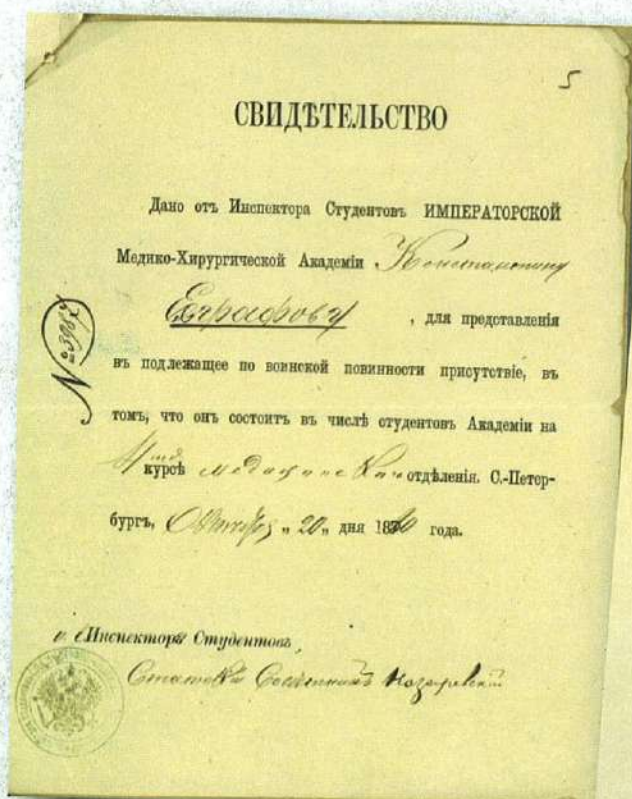 5
СВИДѢТЕЛЬСТВО
Дано отъ Инспектора Студентовъ ИМПЕРАТОРСКОЙ
Медико-Хирургической Академіи Константину
Евграфову, для представленія
№ 3987
въ подлежащее по воинской повинности присутствіе, въ
томъ, что онъ состоитъ въ числѣ студентовъ Академіи на
курсѣ отдѣленія. С.-Петер-
бургъ, Октября „20„ дня 1880 года.
Инспектора Студентовъ,
Статскій Совѣтникъ